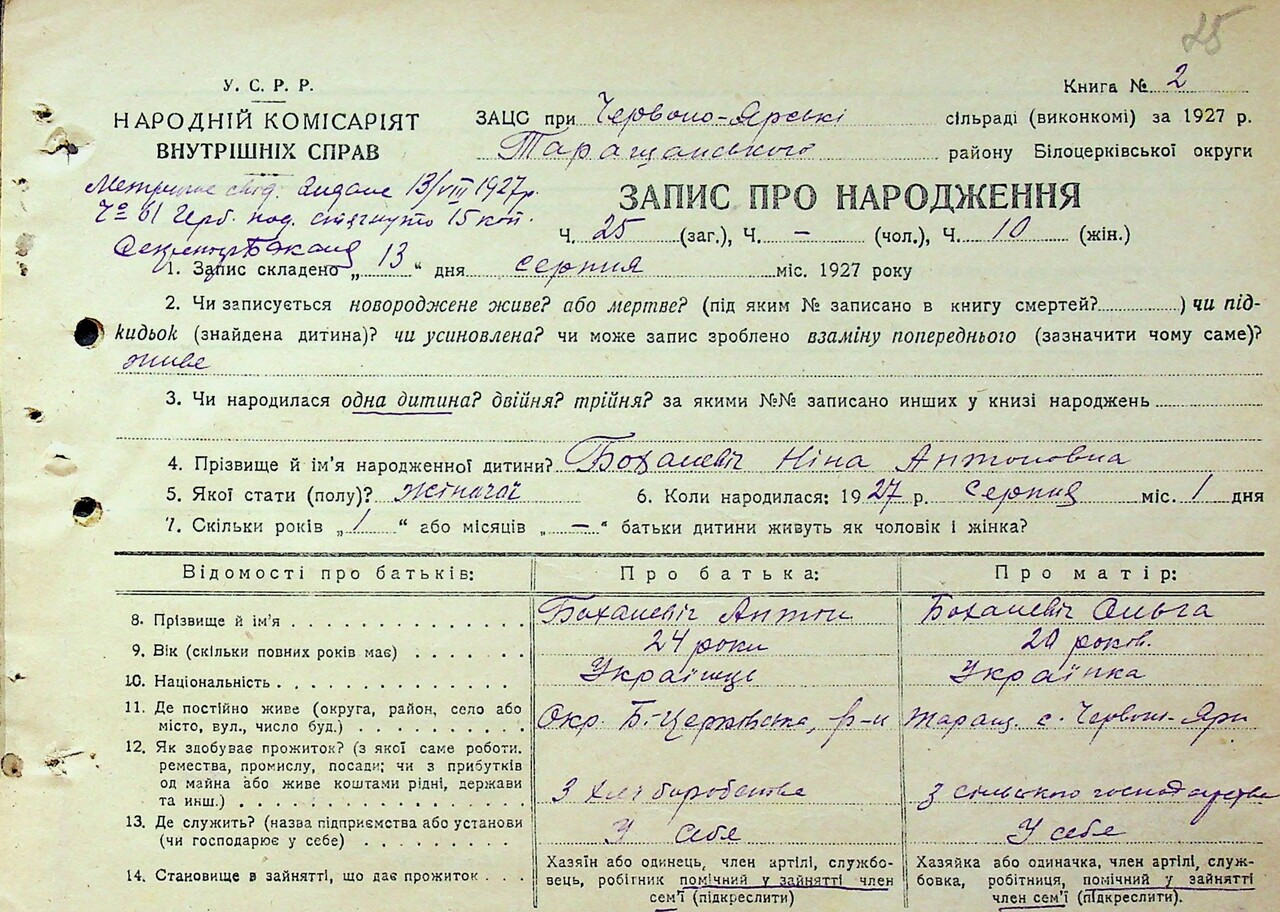 25
У. С. Р. Р.
Книга № 2
НАРОДНІЙ КОМІСАРІЯТ
ВНУТРІШНІХ СПРАВ
ЗАЦС при Червоно-Ярські сільраді (виконкомі) за 1927 р.
Таращанського району Білоцерківської округи
Метричне видане 13/VIII 1927 р.
Чо 61 Герб. под. стягнуто 15 коп.
ЗАПИС ПРО НАРОДЖЕННЯ
Ч. 25 (заг.), Ч. – (чол.), Ч. 10 (жін.)
1. Запис складено „ 13 “ дня серпня міс. 1927 року
2. Чи записується новороджене живе? або мертве? (під яким № записано в книгу смертей?............) чи під-
кидьок (знайдена дитина)? чи усиновлена? чи може запис зроблено взаміну попереднього (зазначити чому саме)?
живе
3. Чи народилася одна дитина? двійня? трійня? за якими №№ записано инших у книзі народжень
4. Прізвище й ім'я народженної дитини? Боханевіч Ніна Антоновна
5. Якої стати (полу)? жіночої 6. Коли народилася: 1927 р. серпня міс. 1 дня
7. Скільки років „ 1 “ або місяців „ – “ батьки дитини живуть як чоловік і жінка?
Відомості про батьків: Про батька: Про матір:
8. Прізвище й ім'я Боханевіч Антон Боханевіч Ольга
9. Вік (скільки повних років має) 24 роки 20 років.
10. Національність Українець Українка
11. Де постійно живе (округа, район, село або
місто, вул., число буд.) Окр. Б-Церковська, р-н Таращ. с. Червоно-Яри
12. Як здобуває прожиток? (з якої саме роботи,
ремества, промислу, посади; чи з прибутків
од майна або живе коштами рідні, держави
та инш.) З хліборобства З сільського господарства
13. Де служить? (назва підприємства або установи
(чи господарює у себе) У себе У себе
14. Становище в зайнятті, що дає прожиток
Хазяїн або одинець, член артілі, службо-
вець, робітник помічний у зайнятті член
сем'ї (підкреслити)
Хазяйка або одиначка, член артілі, служ-
бовка, робітниця, помічний у зайнятті
член сем'ї (підкреслити).